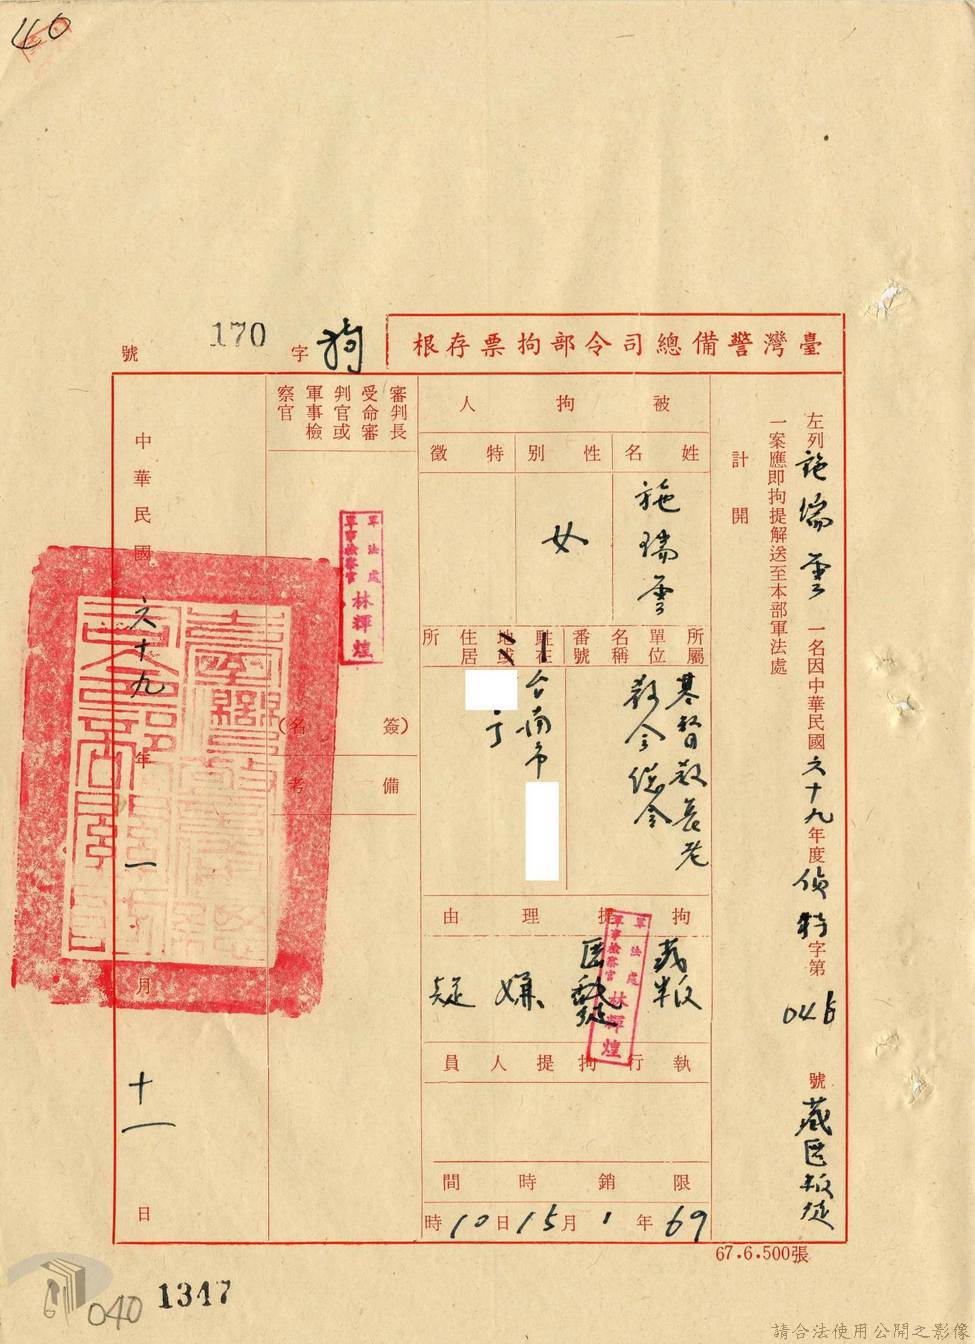 40
臺灣警備總司令部拘票存根
拘字170號
左列施瑞雲一名因中華民國六十九年度偵特字第04號藏匿叛徒
一案應即拘提解送至本部軍法處
計開
被拘人
姓名
性別
特徵
施瑞雲
女
所屬單位名稱番號
駐在地或住居所
基督教長老
教會總會
台南市
拘提理由
藏匿叛徒嫌疑
執行拘提人員
限銷時間
69年1月15日10時
審判長受命審判官或軍事檢察官
軍法處
軍事檢察官林輝煌
軍法處
軍事檢察官林輝煌
(簽名)
備考
中華民國六十九年一月十一日
67.6.500張
040
1347
請合法使用公開之影像